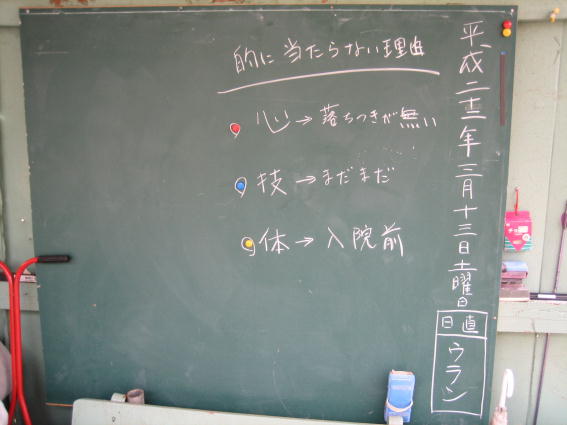 平成二十二年三月十三日土曜日
日直
ウラン
的に当たらない理由
心→落ちつきが無い
技→まだまだ
体→入院前